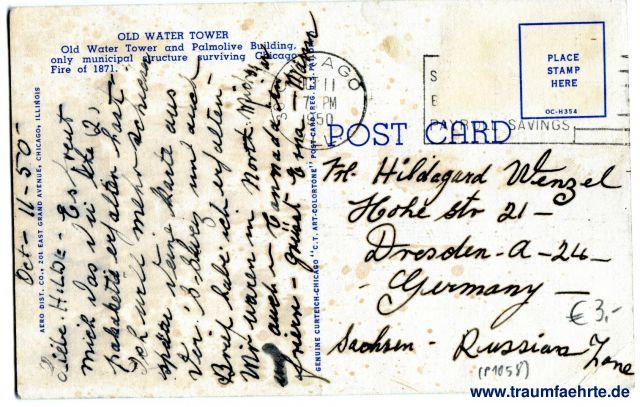 OLD WATER TOWER
Old Water Tower and Palmolive Building,
only municipal structure surviving Chicago
Fire of 1871.
AERO DIST. CO., 201 EAST GRAND AVENUE, CHICAGO, ILLINOIS
Oct-11-50-
Liebe Hilde- Es freut
mich das du die 2
pakete erhalten hast
Ich will mehr schreiben
später Deine Karte aus
der Schweiz und auch
Brief habe ich erhalten
Wir waren in North
auch in Cannada
grüsst Erna - Mann
GENUINE CURTEICH-CHICAGO "C.T. ART-COLORTONE" POST CARD (REG. U.S. PAT. OFF.)
CHICAGO
11
PM
1950
SAVINGS
PLACE
STAMP
HERE
OC-H354
POST CARD
Frl. Hildegard Wenzel
Hohe Str 21-
Dresden-A-24-
Germany-
€ 3,-
Sachsen- Russian Zone
(P1058)
www.traumfaehrte.de